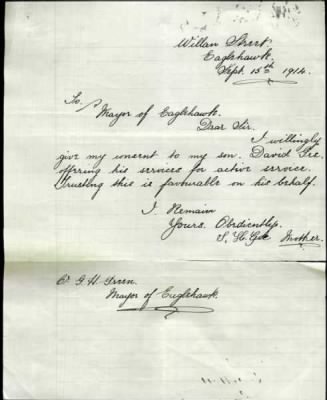 Willan Street.
Eaglehawk.
Sept. 15th 1914.
To,
Mayor of Eaglehawk.
Dear Sir.
I willingly
give my consent to my son. David Gee.
offering his services for active service.
Trusting this is favourable on his behalf.
I. Remain
Yours. Obediently.
S. H. Gee Mother.
G. H.
Mayor of Eaglehawk.